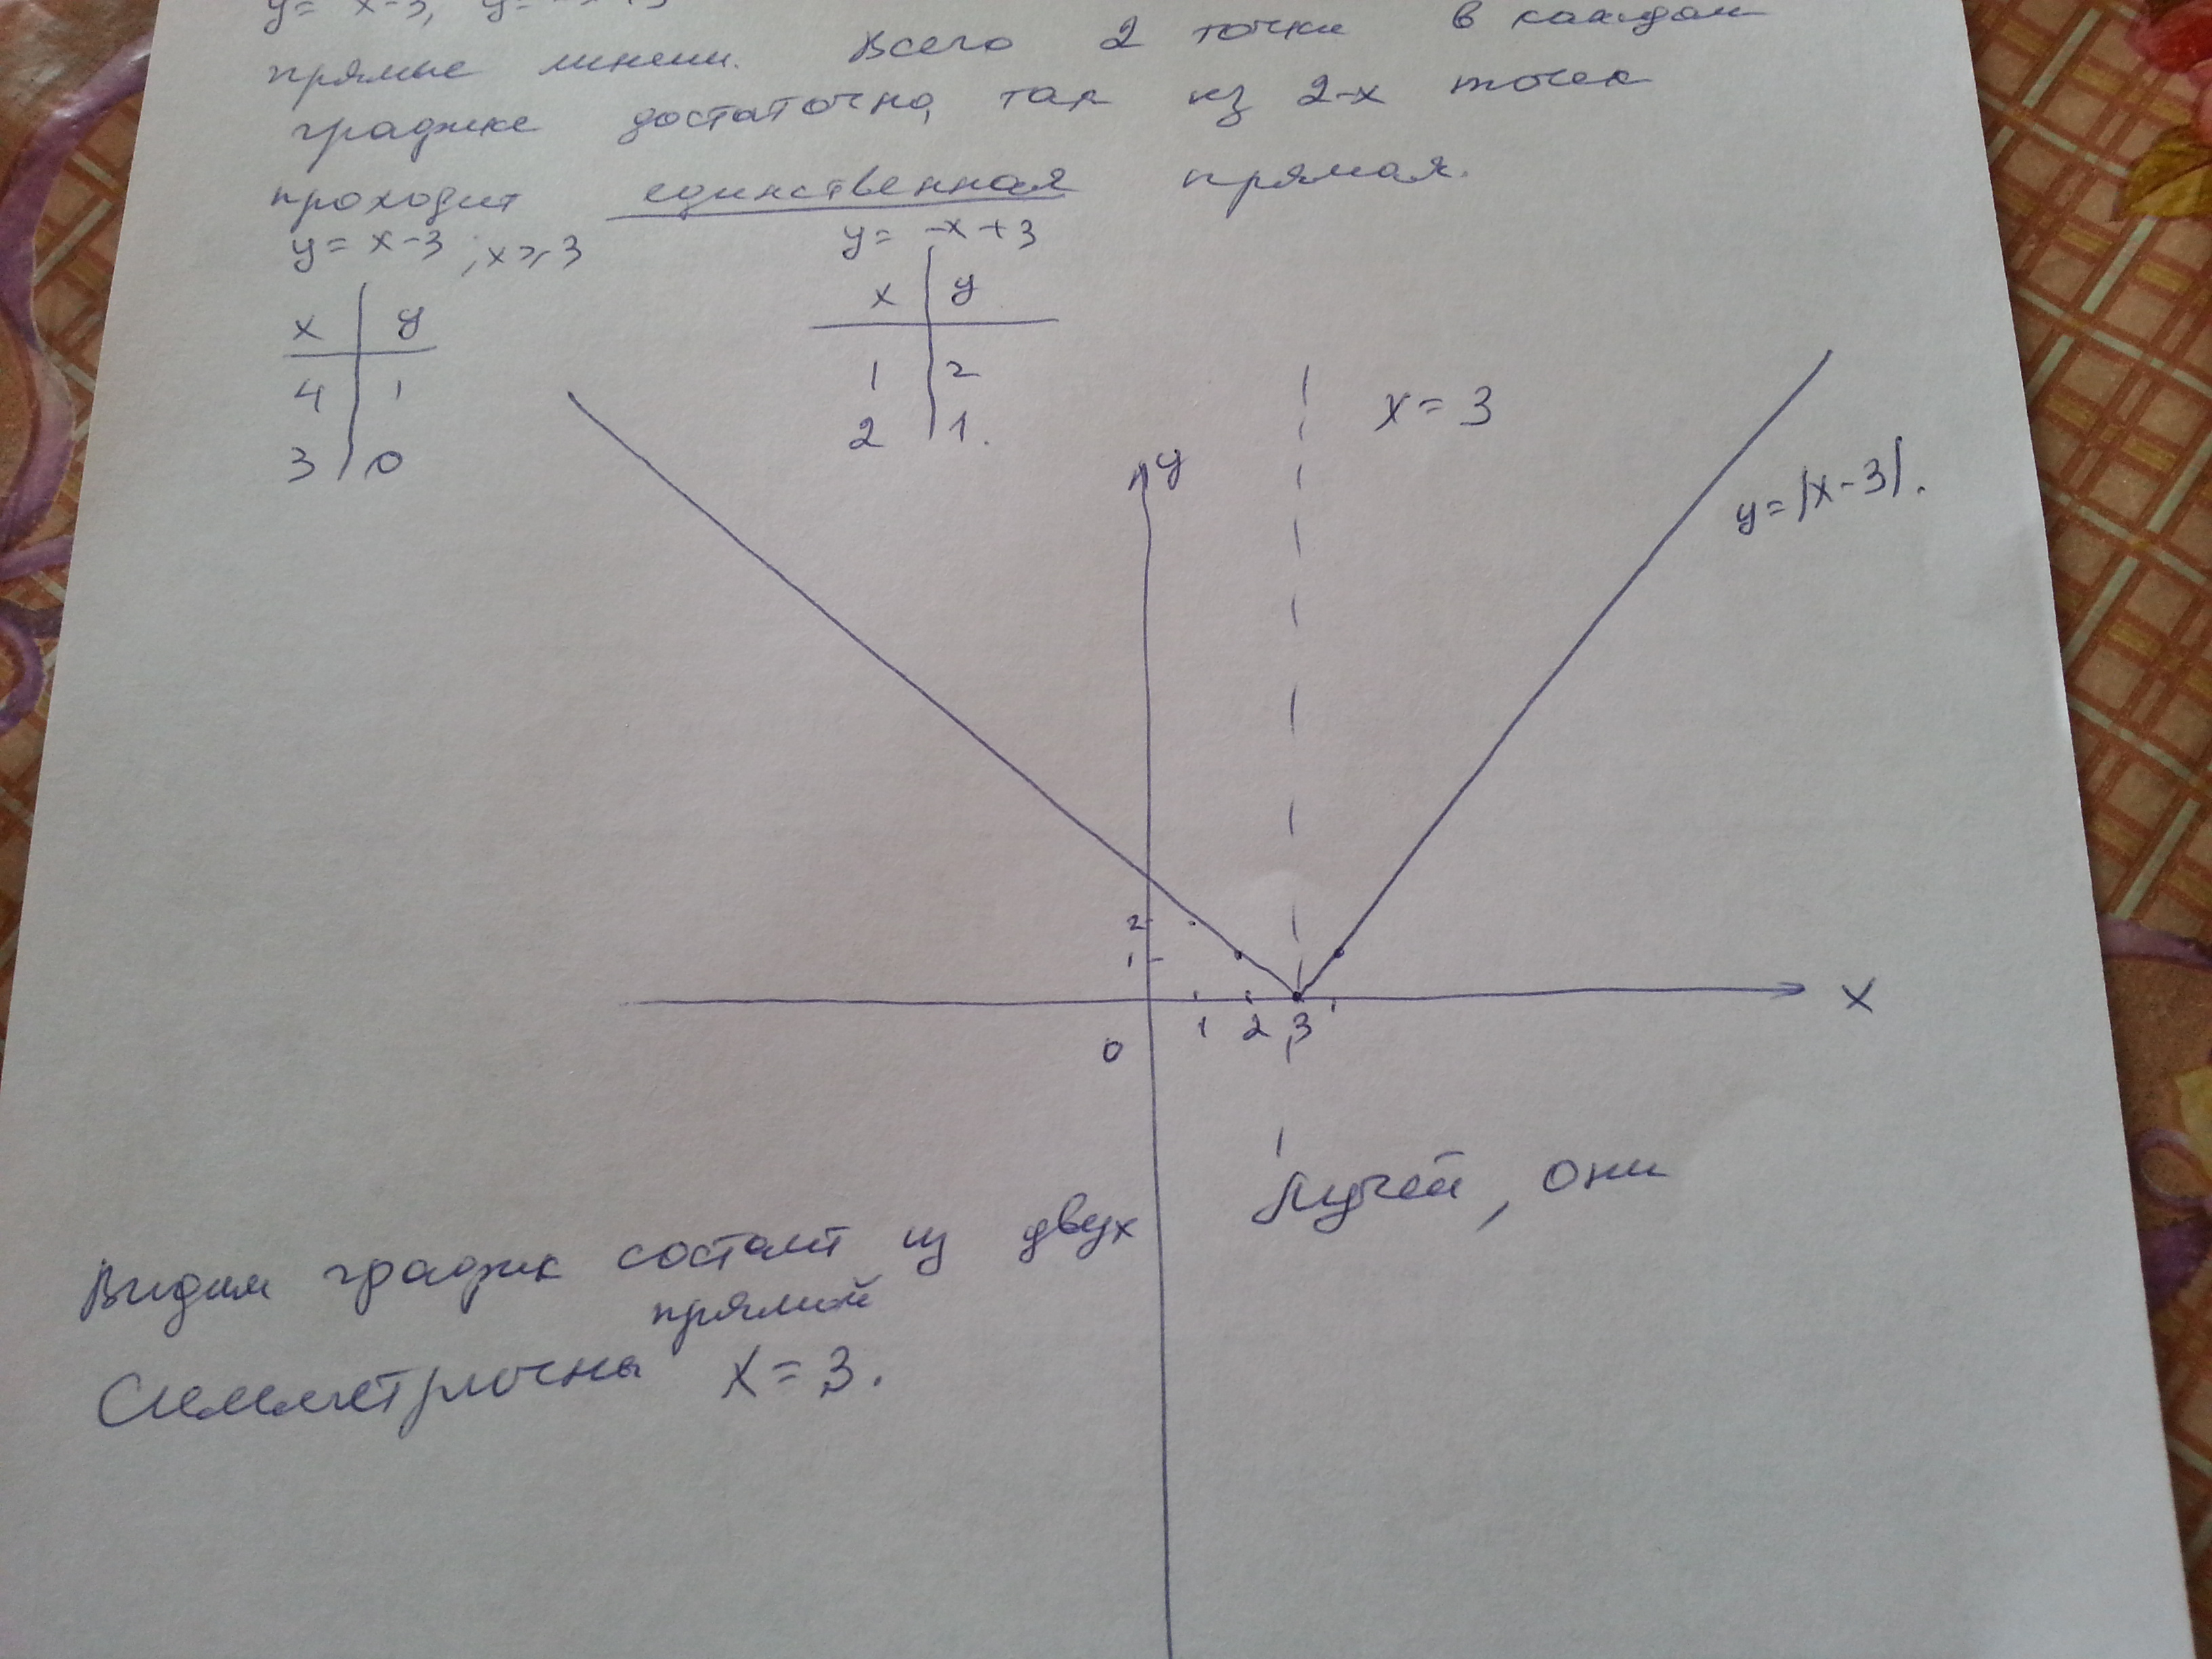 y = x-3, y = -x+3
прямые линии. Всего 2 точки в каждом
графике достаточно, так из 2-х точек
проходит единственная прямая.
y = x-3 ; x ≥ 3
x y
4 1
3 0
y = -x+3
x y
1 2
2 1.
x = 3
y
y = |x-3|.
2
1
0 1 2 3
x
Видим график состоит из двух лучей, они
прямой
Симметричны x = 3.